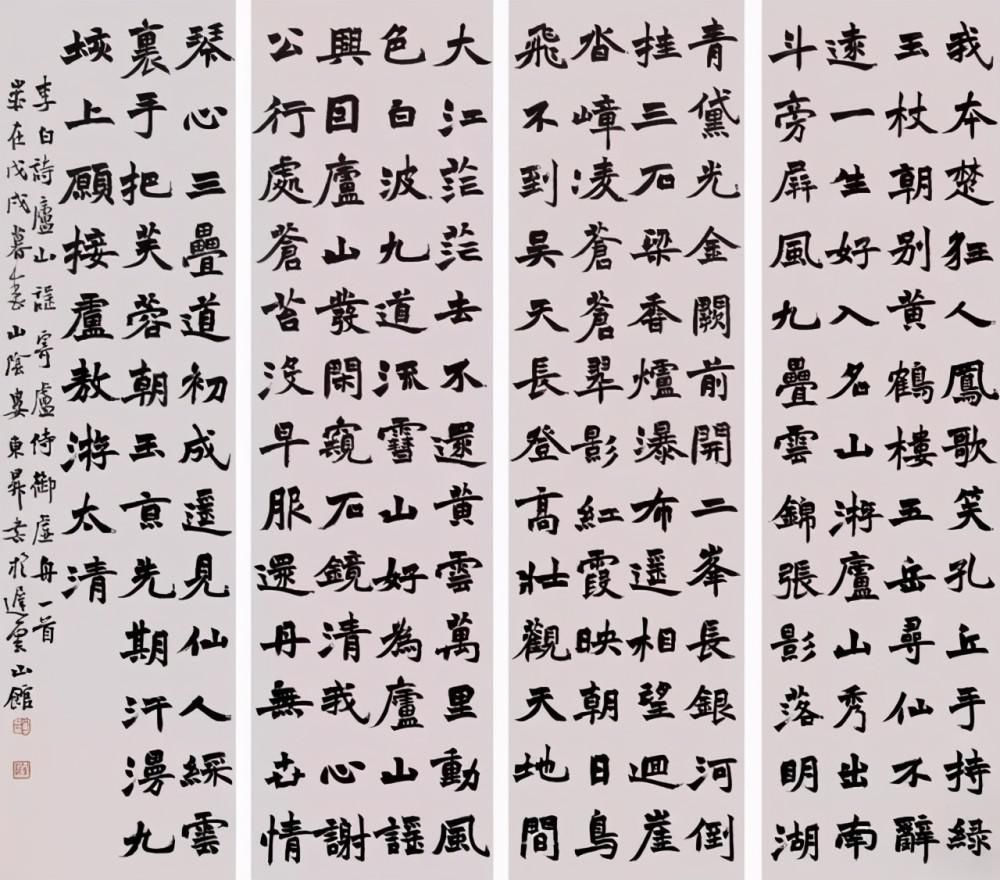 我本楚狂人鳳歌笑孔丘手持綠
玉杖朝别黄鶴樓五岳尋仙不辭
遠一生好入名山游廬山秀出南
斗旁屏風九疊雲錦張影落明湖
青黛光金闕前開二峯長銀河倒
挂三石梁香爐瀑布遥相望迴崖
沓嶂凌蒼蒼翠影紅霞映朝日鳥
飛不到吴天長登高壯觀天地間
大江茫茫去不還黄雲萬里動風
色白波九道流雪山好為廬山謡
興因廬山發閑窺石鏡清我心謝
公行處蒼苔没早服還丹無世情
琴心三疊道初成遥見仙人綵雲
裏手把芙蓉朝玉京先期汗漫九
垓上願接盧敖游太清
李白詩廬山謡寄盧侍御虚舟一首
歲在戊戌暮春山陰婁東昇書於遲雲山館